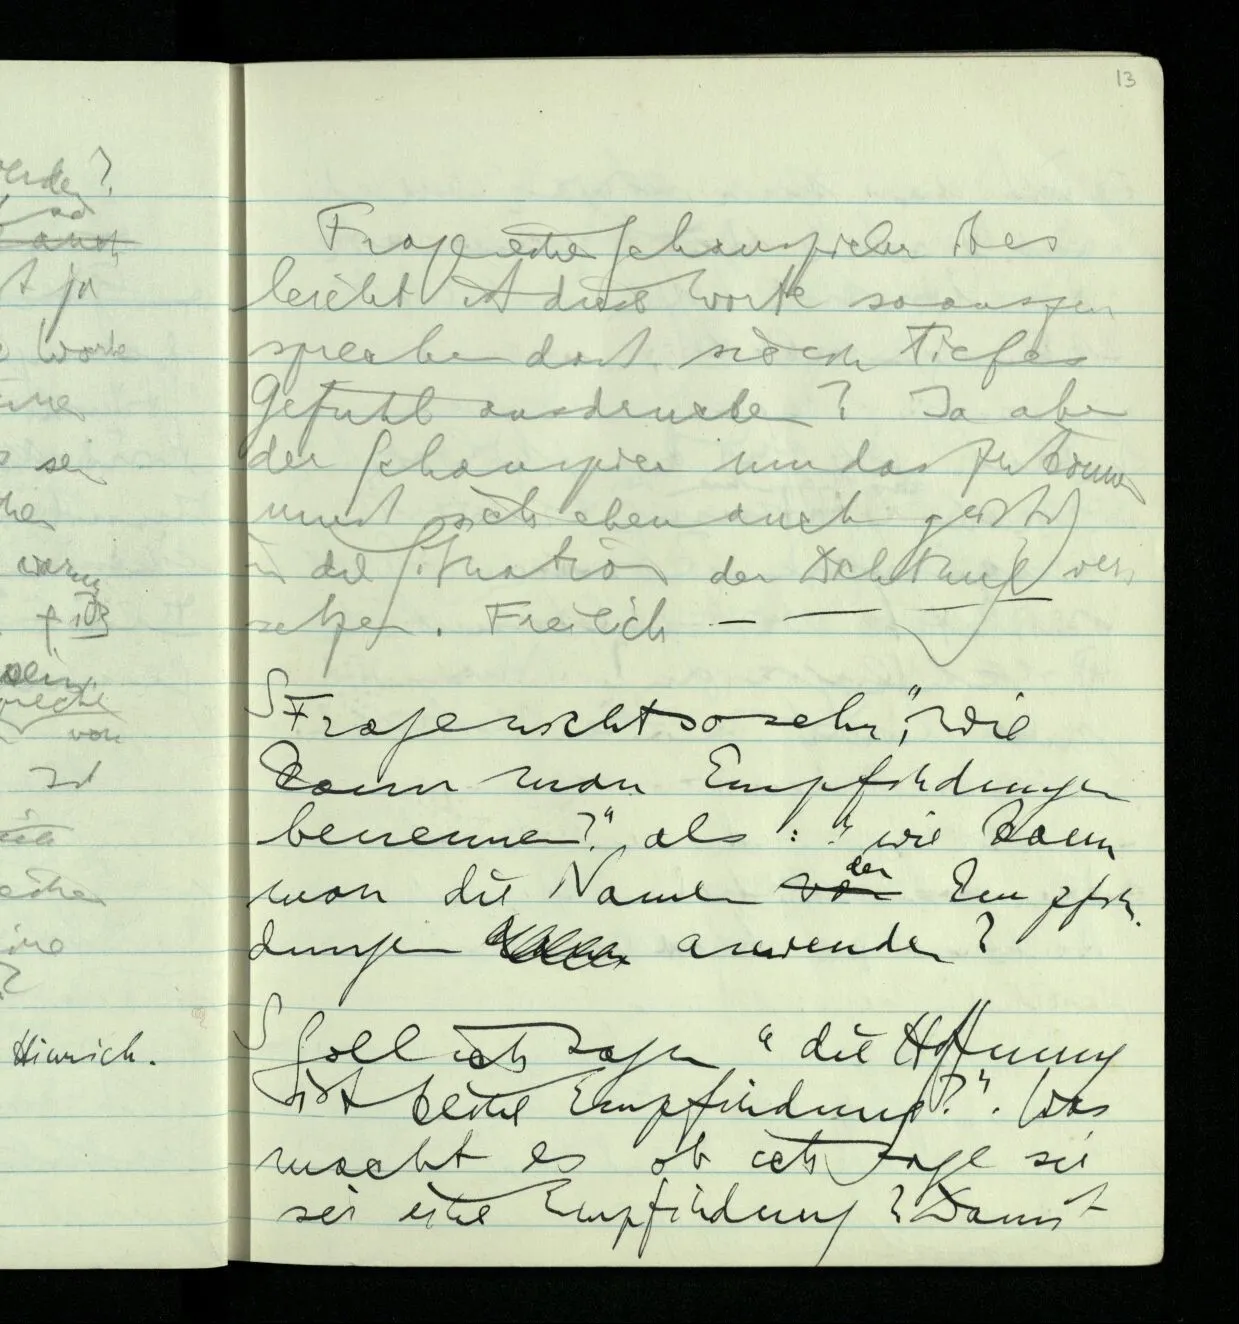 13
Frage einen Schauspieler ob es
leicht ist diese Worte so auszu
sprechen daß sie ein tiefes
Gefühl ausdrücken? Ja aber
der Schauspieler um das zu können
muß sich eben auch geistig
in die Situation der Dichtung ver
setzen. Freilich — — —
S Frage nicht so sehr, "wie
kann man Empfindungen
benennen?", als: "wie kann
man die Namen von der Empfin
dungen anwenden?
S Soll ich sagen "die Hoffnung
ist keine Empfindung?". Was
macht es ob ich sage sie
sei eine Empfindung? Damit
werden?
so
auch
ist ja
Worte
eine
sei
warum
sein
von
Ist
Hinrich.